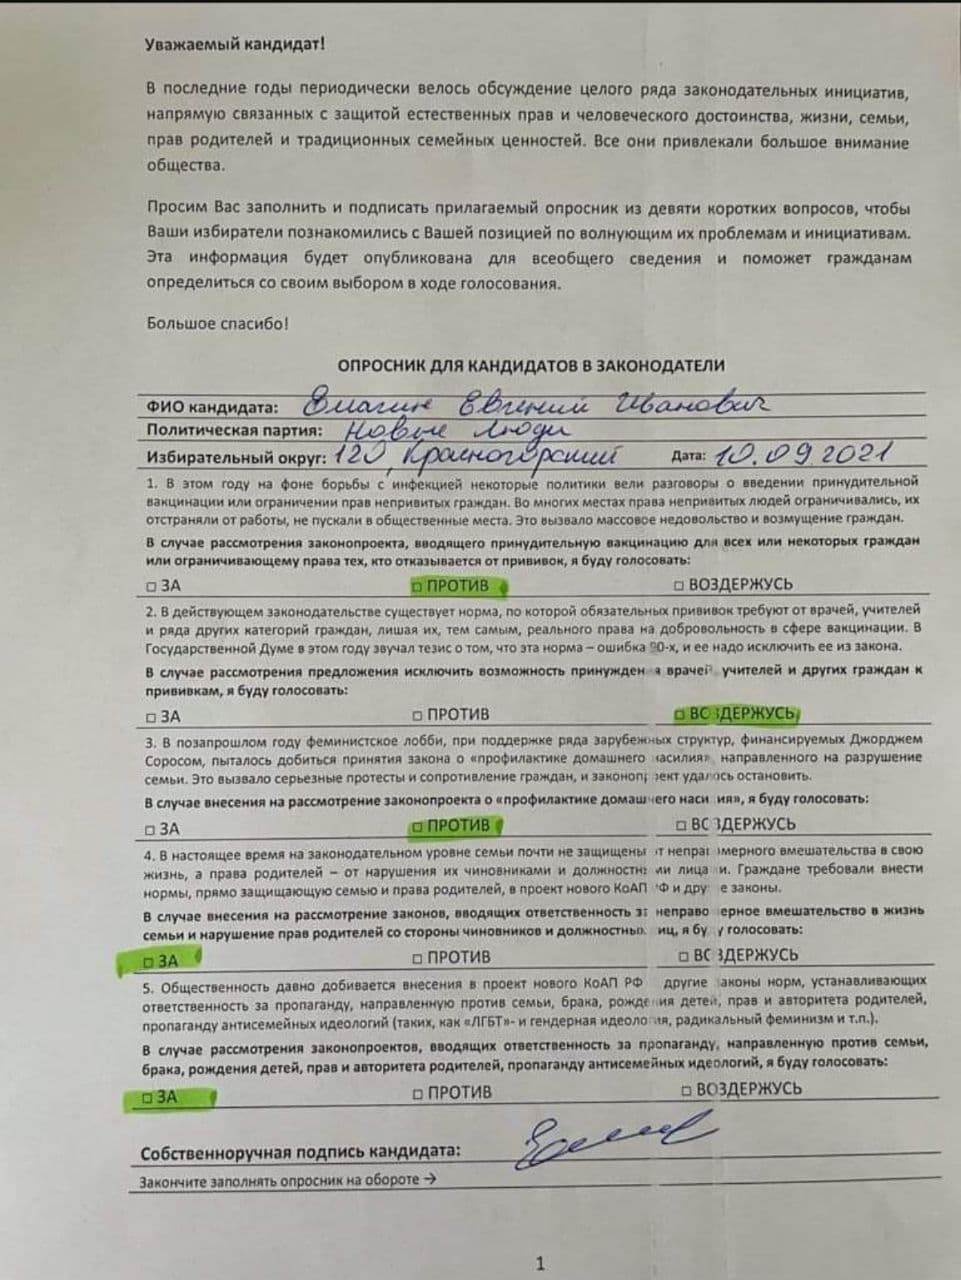 Уважаемый кандидат!
В последние годы периодически велось обсуждение целого ряда законодательных инициатив,
напрямую связанных с защитой естественных прав и человеческого достоинства, жизни, семьи,
прав родителей и традиционных семейных ценностей. Все они привлекали большое внимание
общества.
Просим Вас заполнить и подписать прилагаемый опросник из девяти коротких вопросов, чтобы
Ваши избиратели познакомились с Вашей позицией по волнующим их проблемам и инициативам.
Эта информация будет опубликована для всеобщего сведения и поможет гражданам
определиться со своим выбором в ходе голосования.
Большое спасибо!
ОПРОСНИК ДЛЯ КАНДИДАТОВ В ЗАКОНОДАТЕЛИ
ФИО кандидата: Евгений Иванович
Политическая партия: Новые Люди
Избирательный округ: 120, Красногорский Дата: 10.09.2021
1. В этом году на фоне борьбы с инфекцией некоторые политики вели разговоры о введении принудительной
вакцинации или ограничении прав непривитых граждан. Во многих местах права непривитых людей ограничивались, их
отстраняли от работы, не пускали в общественные места. Это вызвало массовое недовольство и возмущение граждан.
В случае рассмотрения законопроекта, вводящего принудительную вакцинацию для всех или некоторых граждан
или ограничивающему права тех, кто отказывается от прививок, я буду голосовать:
□ ЗА □ ПРОТИВ □ ВОЗДЕРЖУСЬ
2. В действующем законодательстве существует норма, по которой обязательных прививок требуют от врачей, учителей
и ряда других категорий граждан, лишая их, тем самым, реального права на добровольность в сфере вакцинации. В
Государственной Думе в этом году звучал тезис о том, что эта норма – ошибка 90-х, и ее надо исключить ее из закона.
В случае рассмотрения предложения исключить возможность принуждения врачей, учителей и других граждан к
прививкам, я буду голосовать:
□ ЗА □ ПРОТИВ □ ВОЗДЕРЖУСЬ
3. В позапрошлом году феминистское лобби, при поддержке ряда зарубежных структур, финансируемых Джорджем
Соросом, пыталось добиться принятия закона о «профилактике домашнего насилия», направленного на разрушение
семьи. Это вызвало серьезные протесты и сопротивление граждан, и законопроект удалось остановить.
В случае внесения на рассмотрение законопроекта о «профилактике домашнего насилия», я буду голосовать:
□ ЗА □ ПРОТИВ □ ВОЗДЕРЖУСЬ
4. В настоящее время на законодательном уровне семьи почти не защищены от неправомерного вмешательства в свою
жизнь, а права родителей – от нарушения их чиновниками и должностными лицами. Граждане требовали внести
нормы, прямо защищающую семью и права родителей, в проект нового КоАП РФ и другие законы.
В случае внесения на рассмотрение законов, вводящих ответственность за неправомерное вмешательство в жизнь
семьи и нарушение прав родителей со стороны чиновников и должностных лиц, я буду голосовать:
□ ЗА □ ПРОТИВ □ ВОЗДЕРЖУСЬ
5. Общественность давно добивается внесения в проект нового КоАП РФ другие законы норм, устанавливающих
ответственность за пропаганду, направленную против семьи, брака, рождения детей, прав и авторитета родителей,
пропаганду антисемейных идеологий (таких, как «ЛГБТ»- и гендерная идеология, радикальный феминизм и т.п.).
В случае рассмотрения законопроектов, вводящих ответственность за пропаганду, направленную против семьи,
брака, рождения детей, прав и авторитета родителей, пропаганду антисемейных идеологий, я буду голосовать:
□ ЗА □ ПРОТИВ □ ВОЗДЕРЖУСЬ
Собственноручная подпись кандидата:
Закончите заполнять опросник на обороте →
1